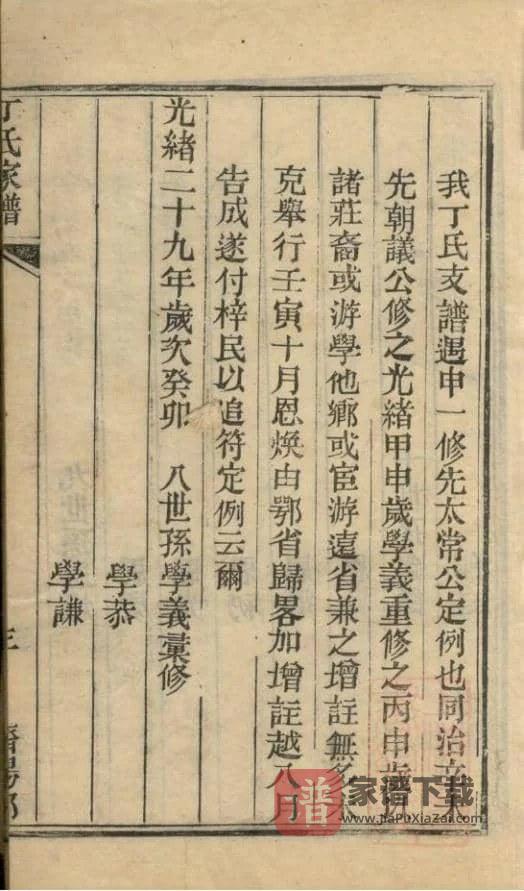 我丁氏支譜遇申一修先太常公定例也同治
先朝議公修之光緒甲申歲學義重修之丙申歲
諸莊裔或游學他鄉或宦游遠省兼之增註無多
克舉行壬寅十月恩煥由鄂省歸畧加增註越八月
告成遂付梓民以追符定例云爾
光緒二十九年歲次癸卯 八世孫學義彙修
學恭
學謙
丁氏家譜
三
濟陽郡
普
家谱下载
www.JiaPuXiaZai.com